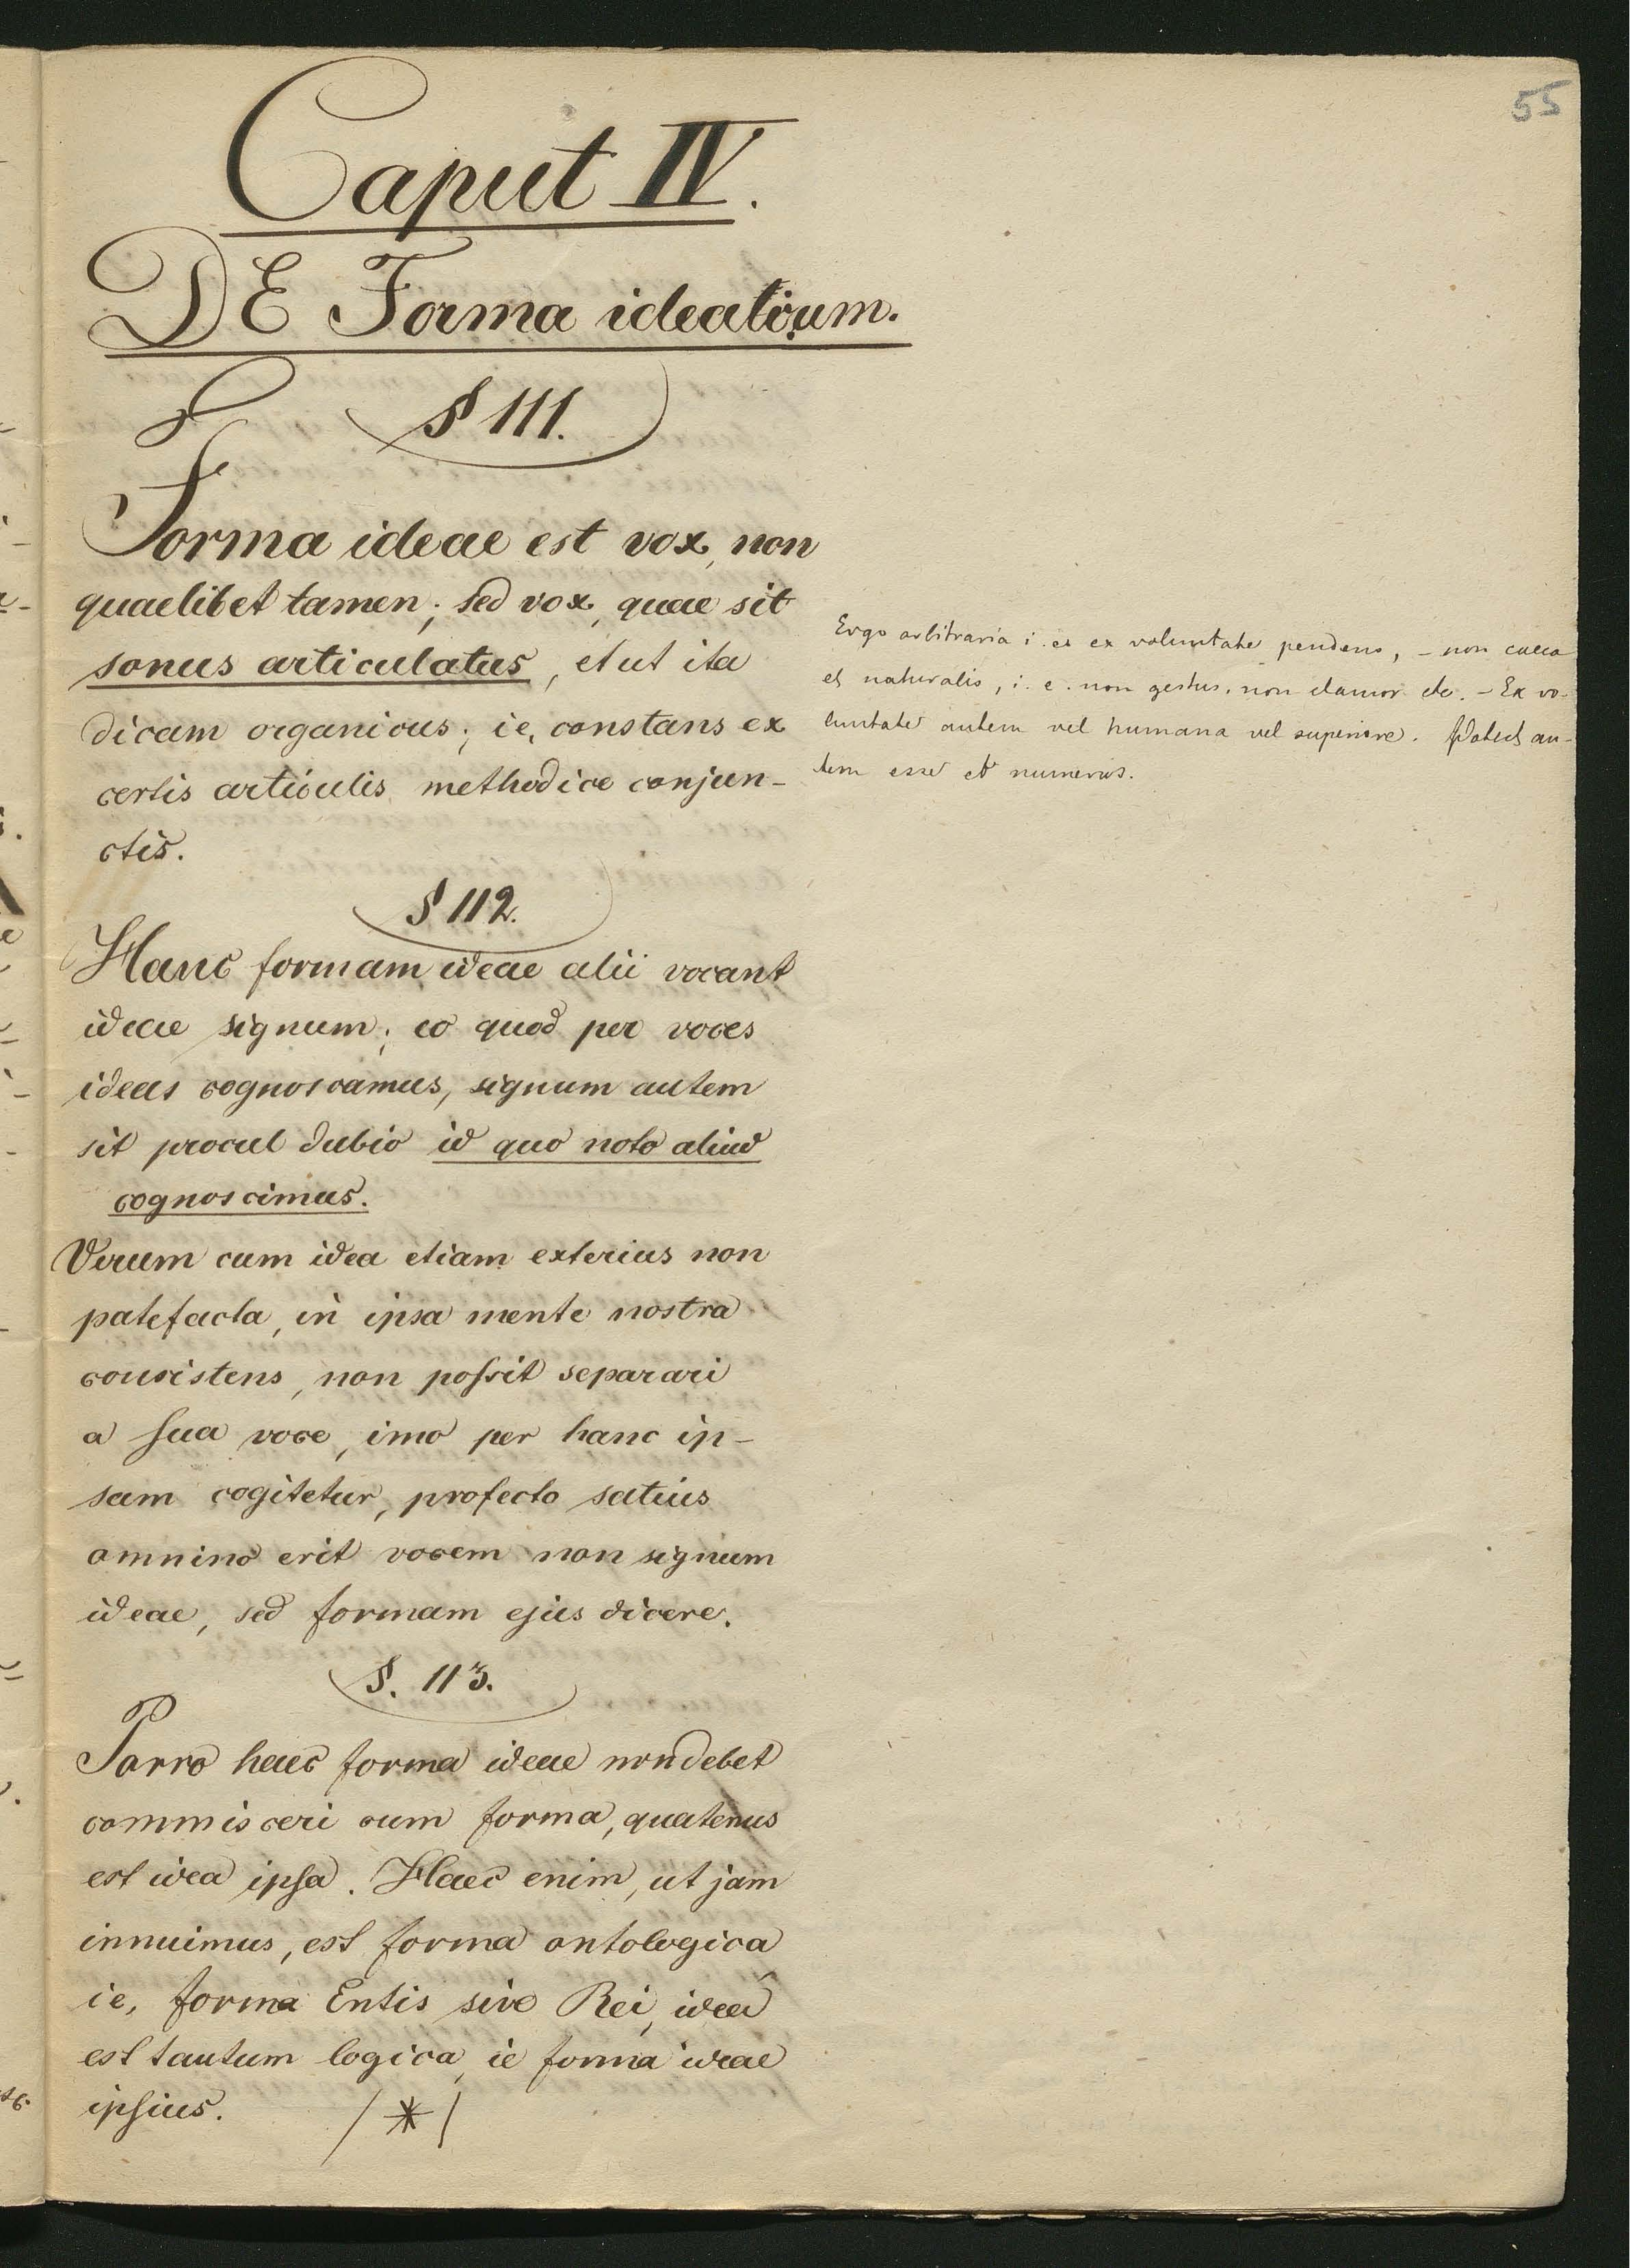 55
Caput IV.
DE Forma idearum.
§ 111.
Forma ideae est vox, non
quaelibet tamen; sed vox, quae sit
sonus articulatus, et ut ita
dicam organicus; ie, constans ex
certis articulis methodice conjun-
ctis.
Ergo arbitraria i. e. ex voluntate pendens, – non caeca
et naturalis, i. e. non gestus, non clamor etc. – Ex vo-
luntate autem vel humana vel superiore. Patest au-
tem esse et numerus.
§ 112.
Hanc formam ideae alii vocant
ideae signum; eo quod per voces
ideas cognoscamus, signum autem
sit procul dubio id quo noto aliud
cognoscimus.
Verum cum idea etiam exterius non
patefacta, in ipsa mente nostra
consistens, non possit separari
a sua voce, imo per hanc ip-
sam cogitetur, profecto satius
omnino erit vocem non signum
ideae, sed formam ejus dicere.
§. 113.
Porro haec forma ideae non debet
commisceri cum forma, quatenus
est idea ipsa. Haec enim, ut jam
innuimus, est forma ontologica
ie, forma Entis sive Rei,
est tantum logica, ie forma ideae
ipsius. / * /